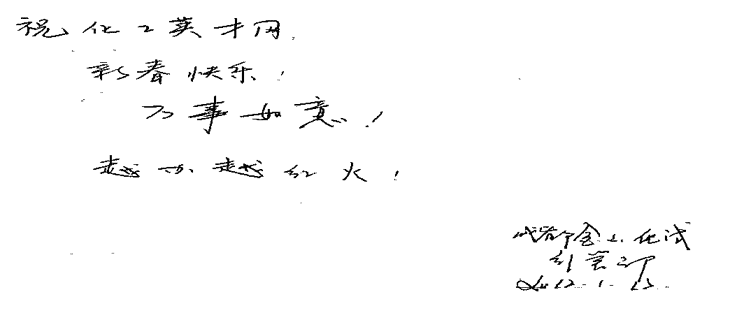 祝化工英才网
新春快乐！
万事如意！
越办越红火！
成都金山化试
2012.1.13.